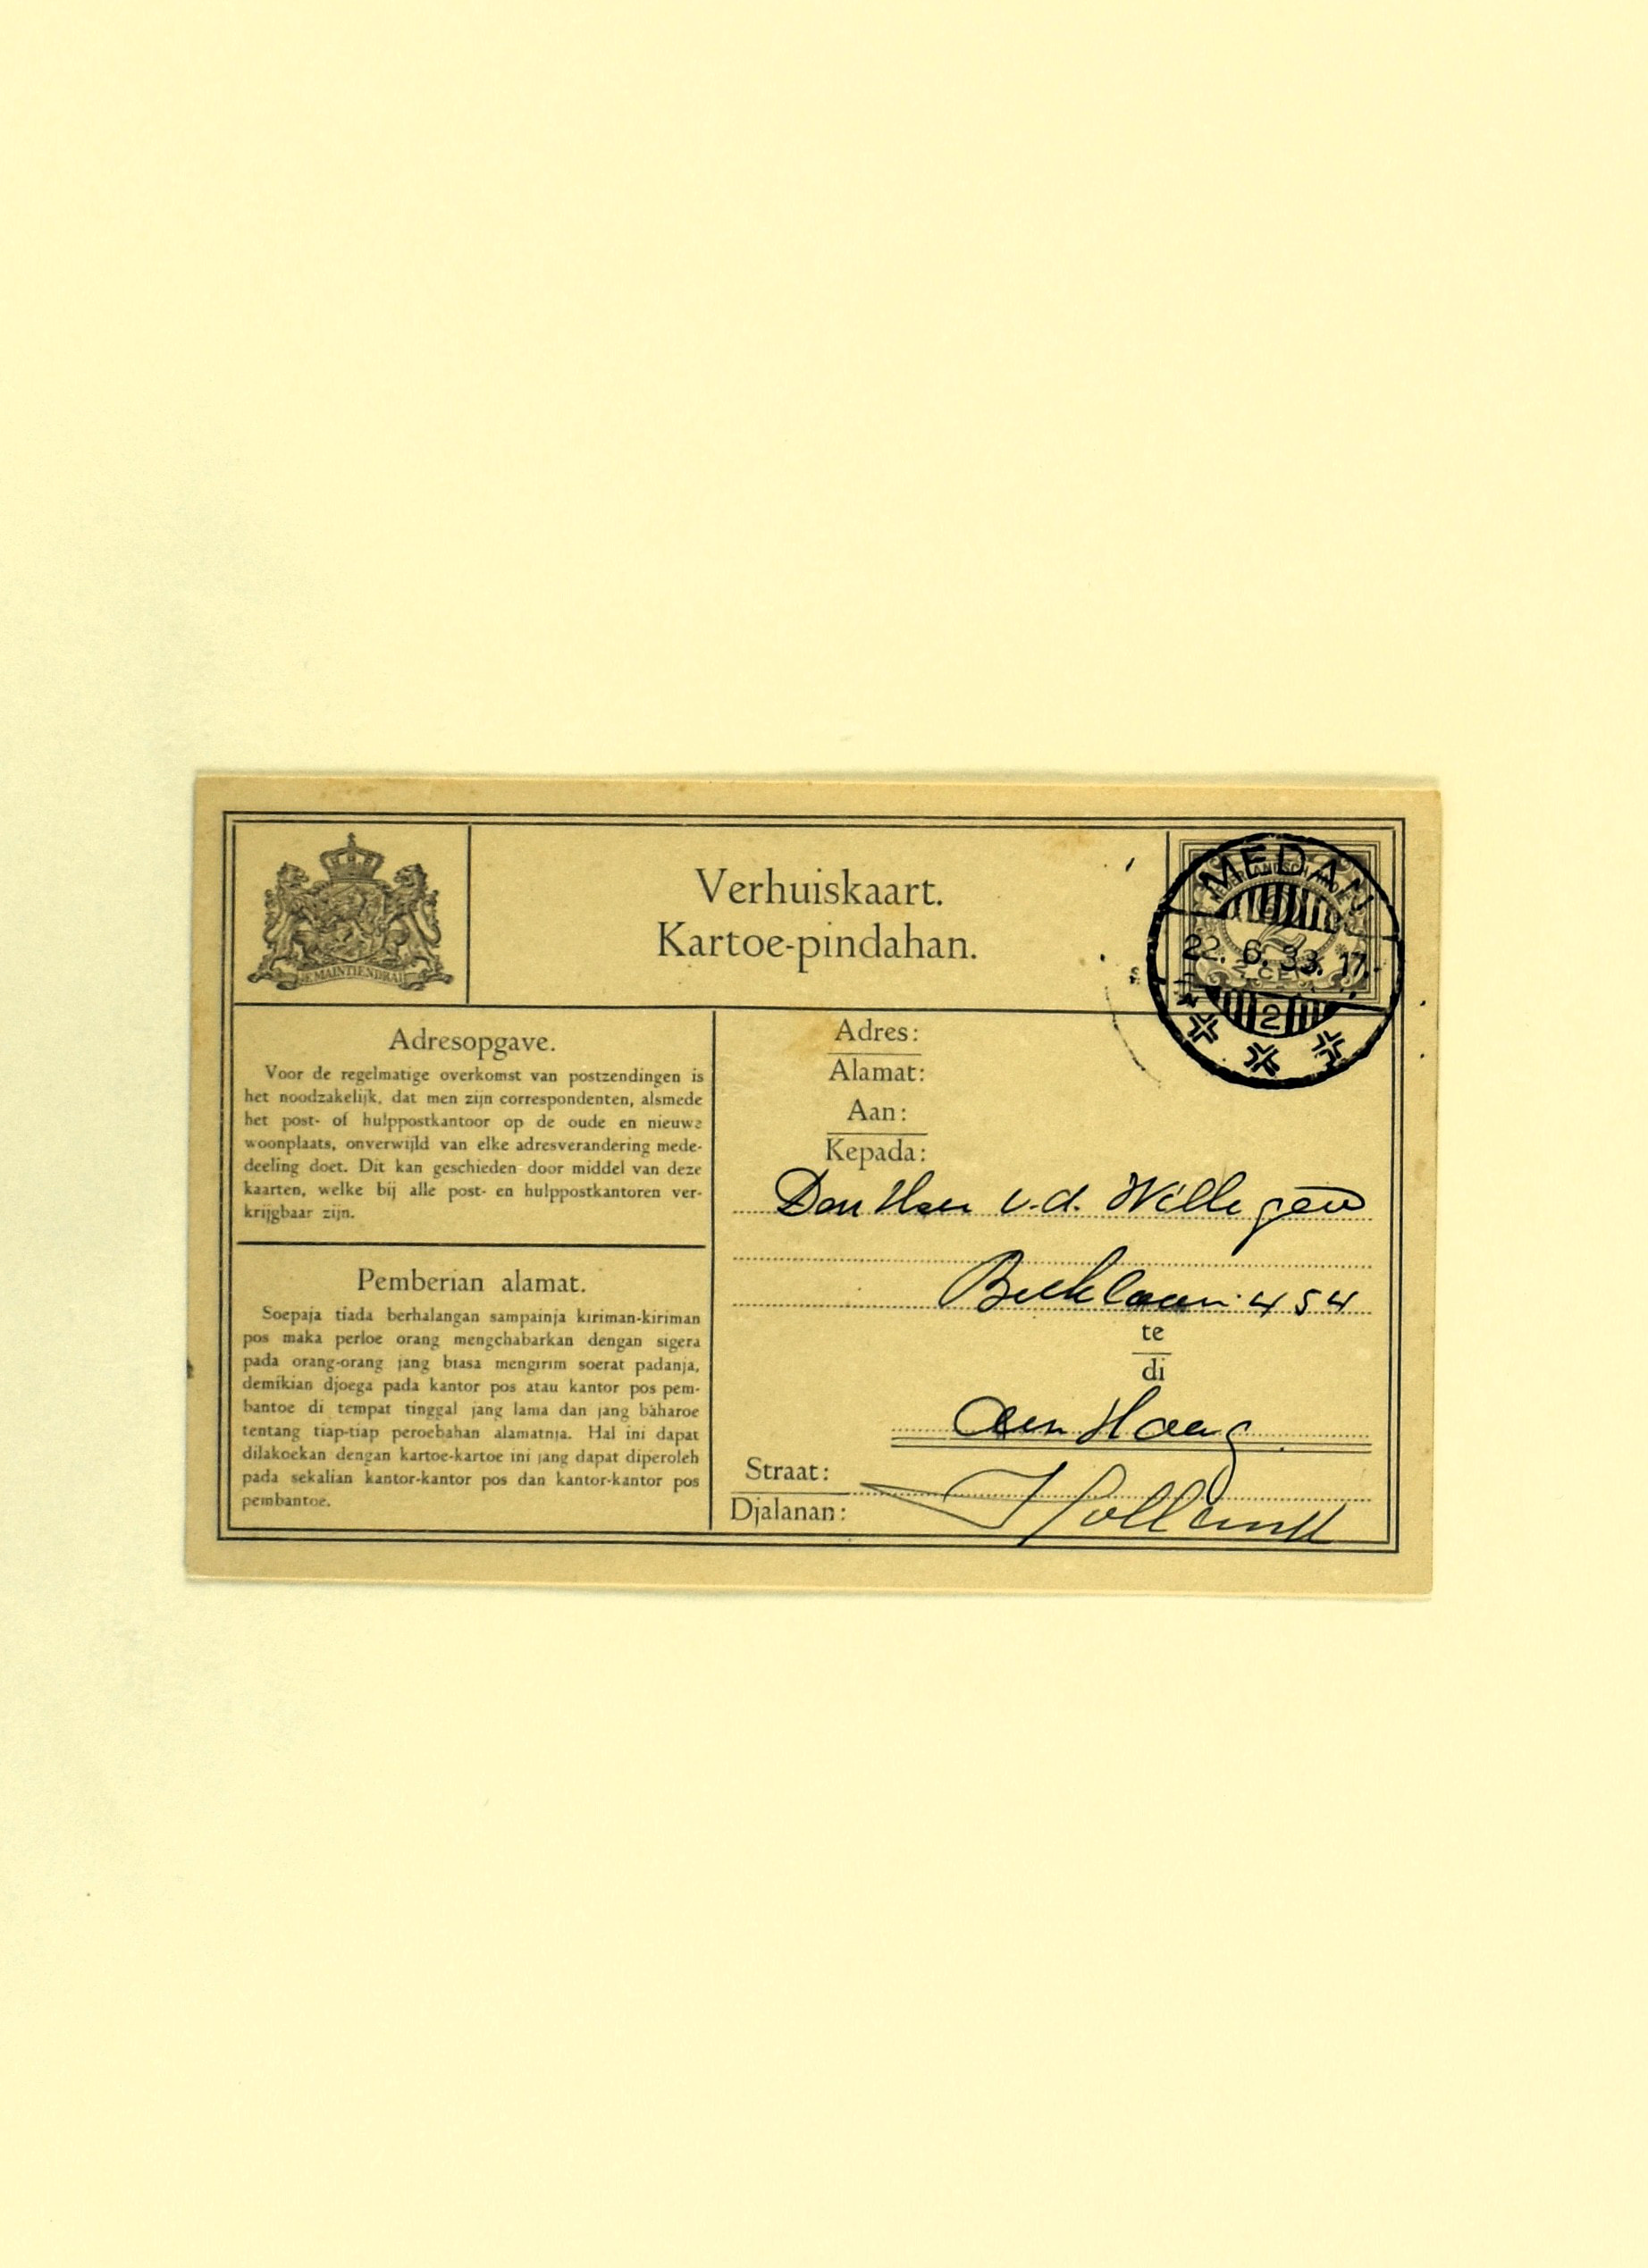 JE MAINTIENDRAI
Verhuiskaart.
Kartoe-pindahan.
MEDAN
22. 6. 33. 17
2
Adresopgave.
Voor de regelmatige overkomst van postzendingen is
het noodzakelijk, dat men zijn correspondenten, alsmede
het post- of hulppostkantoor op de oude en nieuwe
woonplaats, onverwijld van elke adresverandering mede-
deeling doet. Dit kan geschieden door middel van deze
kaarten, welke bij alle post- en hulppostkantoren ver-
krijgbaar zijn.
Pemberian alamat.
Soepaja tiada berhalangan sampainja kiriman-kiriman
pos maka perloe orang mengchabarkan dengan sigera
pada orang-orang jang biasa mengirim soerat padanja,
demikian djoega pada kantor pos atau kantor pos pem-
bantoe di tempat tinggal jang lama dan jang baharoe
tentang tiap-tiap peroebahan alamatnja. Hal ini dapat
dilakoekan dengan kartoe-kartoe ini jang dapat diperoleh
pada sekalian kantor-kantor pos dan kantor-kantor pos
pembantoe.
Adres:
Alamat:
Aan:
Kepada:
Den Heer v.d. Willegen
Beeklaan 454
te
di
den Haag
Straat:
Djalanan:
Holland